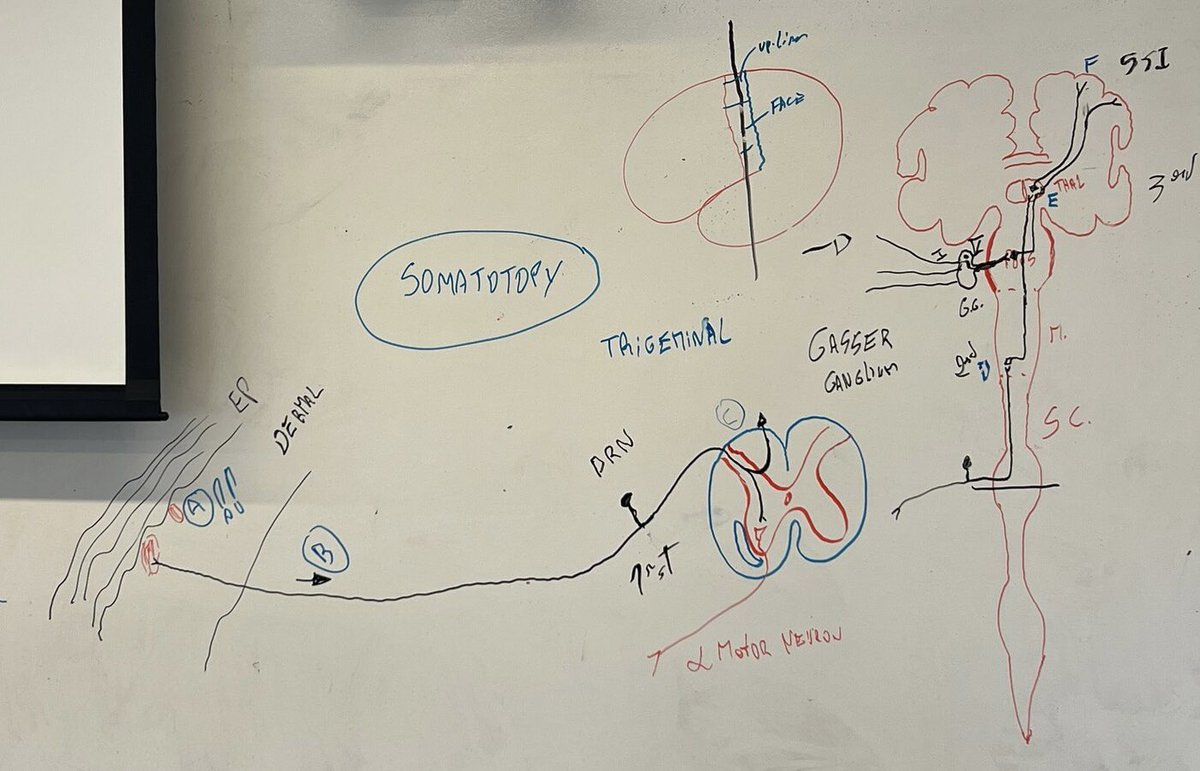 up. limb
FACE
F
SSI
THAL
E
3rd
SOMATOTOPY
I
V
G.G.
TRIGEMINAL
GASSER
GANGLIUM
M.
2nd
D
S.C.
EP
DERMAL
A
B
C
DRN
1rst
α MOTOR NEURON